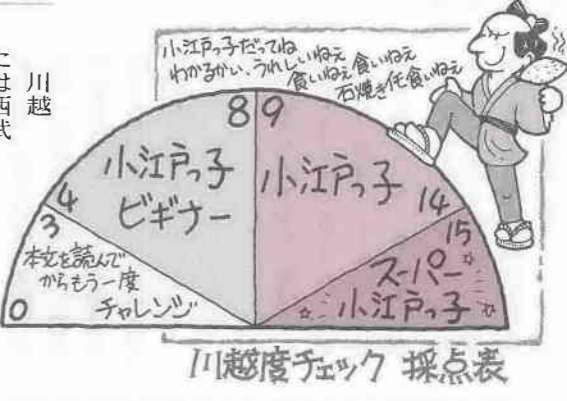 川越
には西武
小江戸っ子だってね
わかるかい、うれしいねえ
食いねえ食いねえ
石焼き任食いねえ
8
9
小江戸っ子
ビギナー
小江戸っ子
4
14
3
15
本文を読んで
からもう一度
チャレンジ
スーパー
小江戸っ子
0
川越度チェック 採点表